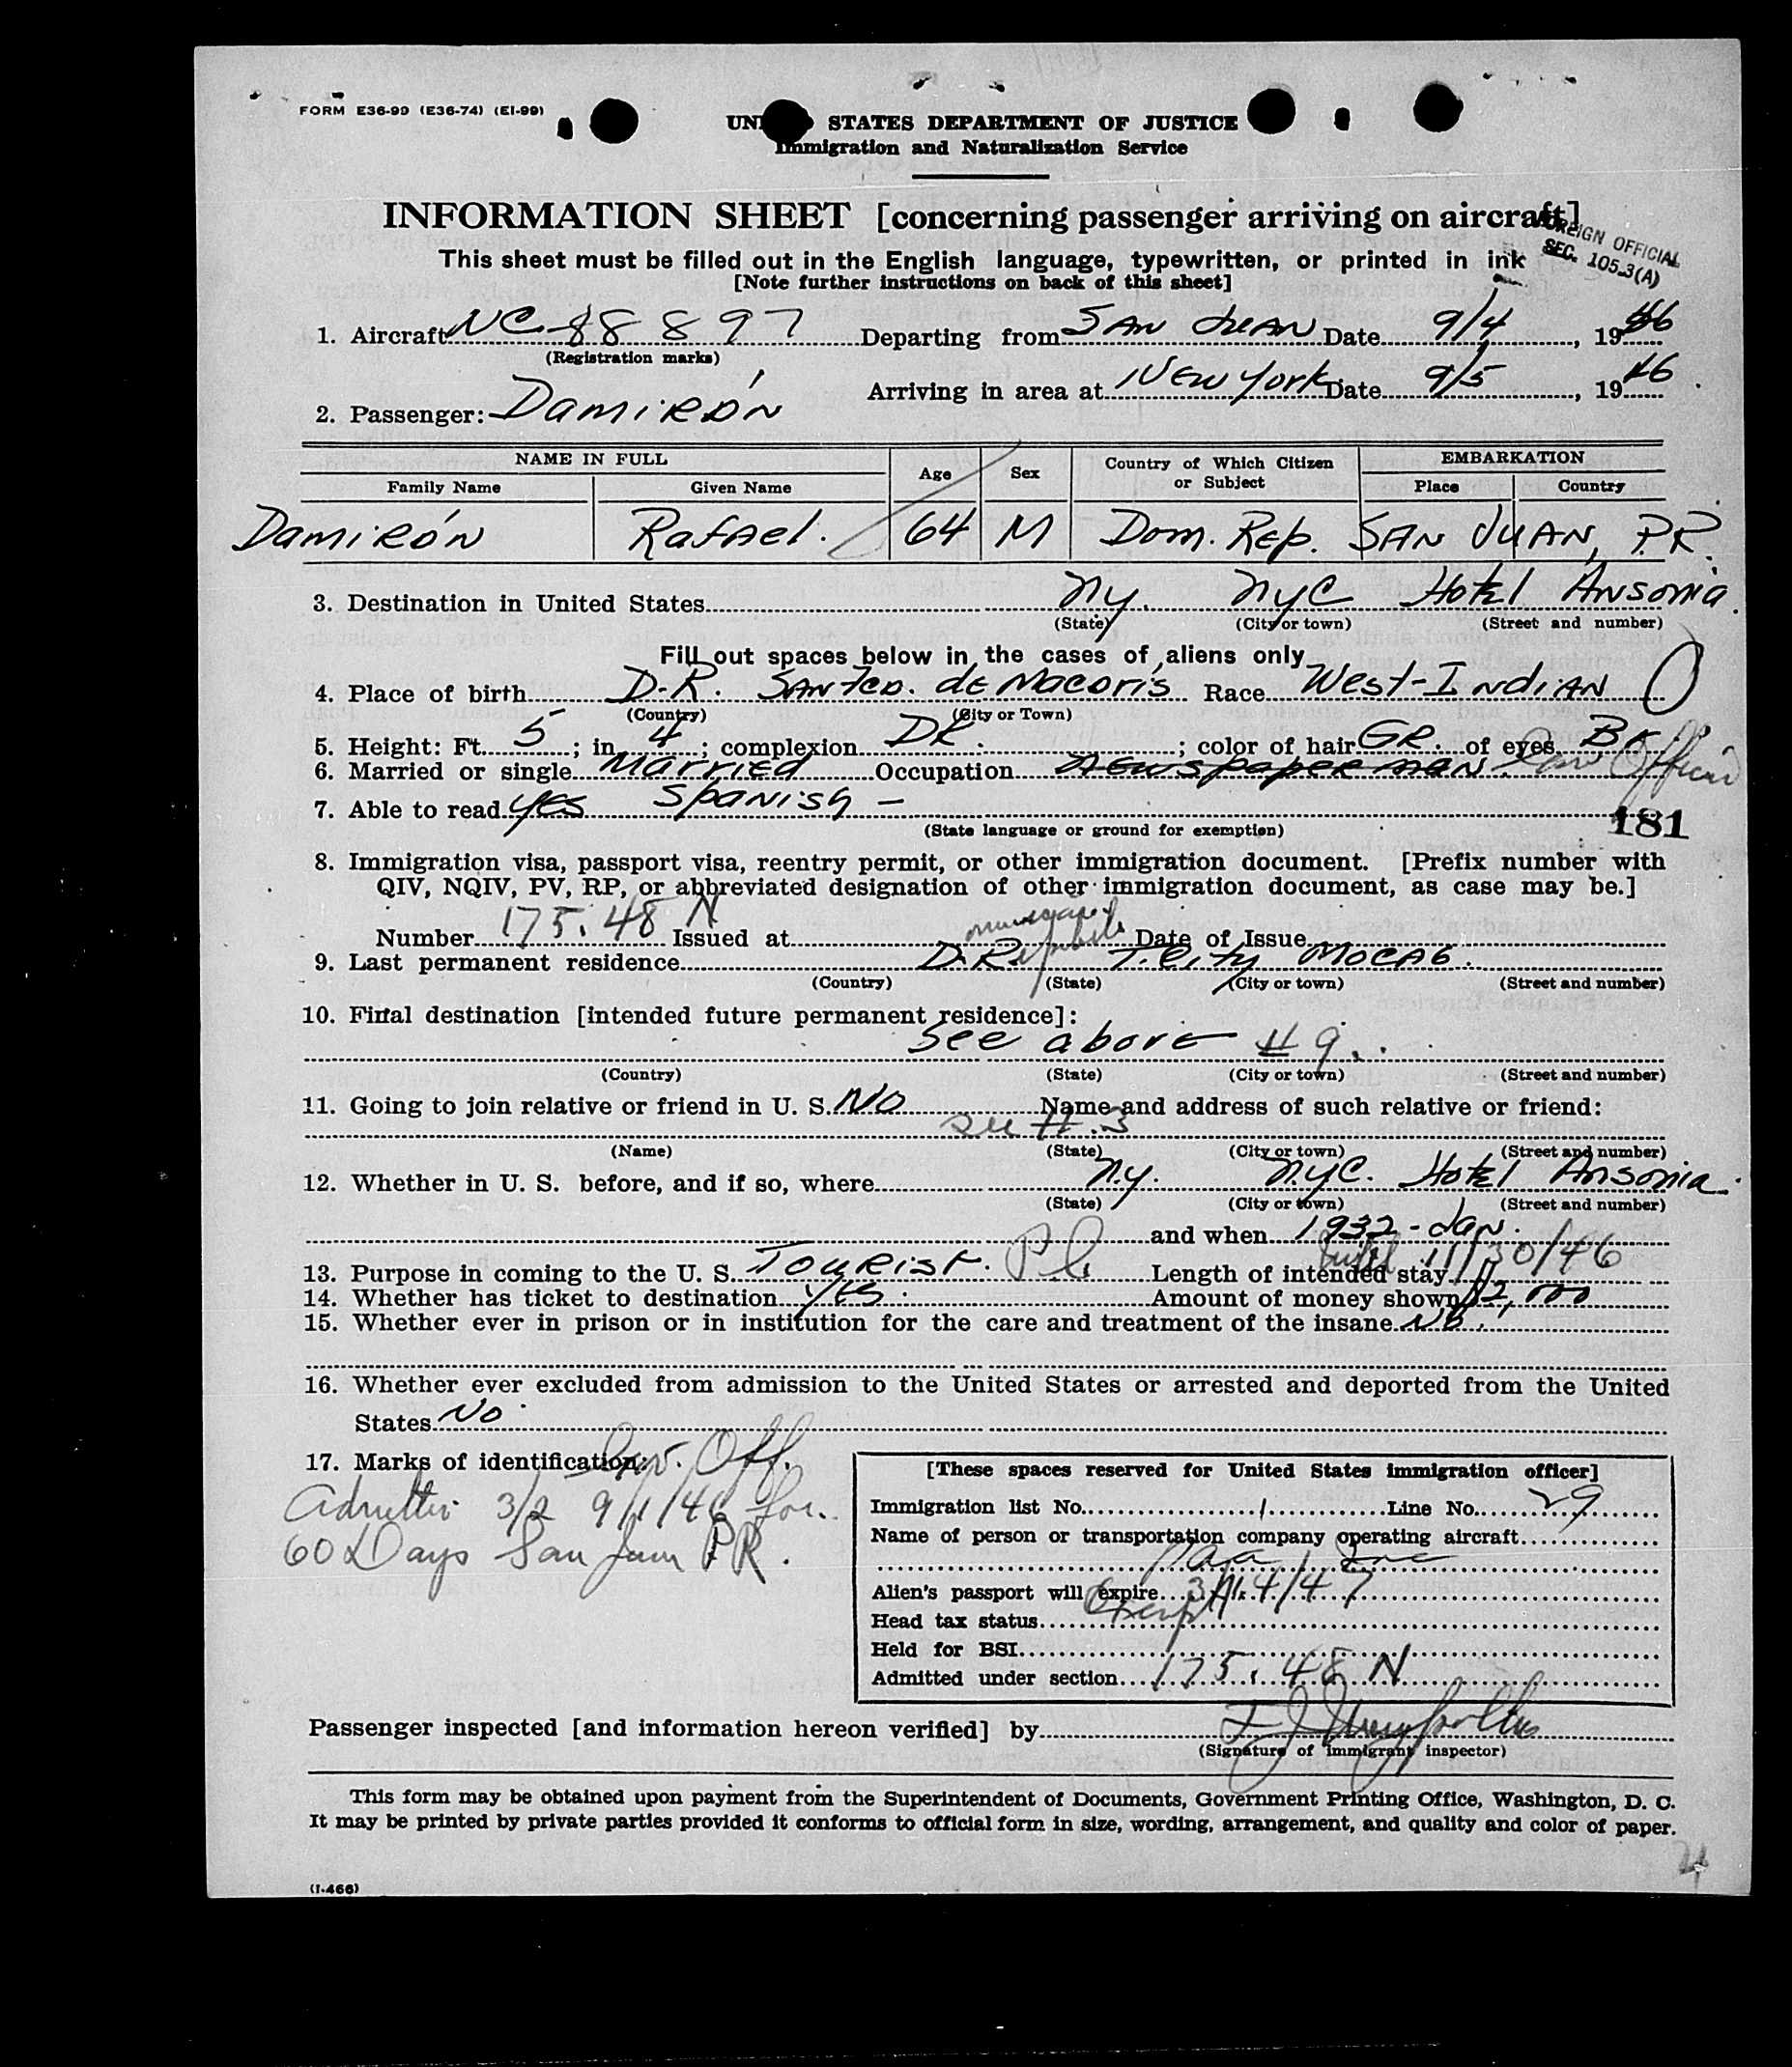 FORM E36-99 (E36-74) (E1-99)
STATES DEPARTMENT OF JUSTICE
Immigration and Naturalization Service
INFORMATION SHEET [concerning passenger arriving on aircraft]
FOREIGN OFFICIAL
SEC. 105.3(A)
This sheet must be filled out in the English language, typewritten, or printed in ink
[Note further instructions on back of this sheet]
1. Aircraft NC-88897 Departing from SAN JUAN Date 9/4, 1946
(Registration marks)
Arriving in area at New York Date 9/5, 1946
2. Passenger: Damirón
NAME IN FULL Age Sex Country of Which Citizen or Subject EMBARKATION
Family Name Given Name Place Country
Damirón Rafael. 64 M Dom. Rep. SAN JUAN, P.R.
3. Destination in United States N.Y. NYC Hotel Ansonia.
(State) (City or town) (Street and number)
Fill out spaces below in the cases of aliens only
4. Place of birth D.R. de Macorís Race West-Indian
(Country) (City or Town)
5. Height: Ft. 5; in. 4; complexion DK.; color of hair GR. of eyes Br.
6. Married or single Married Occupation newspaperman. Gov Official
7. Able to read yes Spanish -
(State language or ground for exemption)
181
8. Immigration visa, passport visa, reentry permit, or other immigration document. [Prefix number with
QIV, NQIV, PV, RP, or abbreviated designation of other immigration document, as case may be.]
Number 175.48 N Issued at Date of Issue
9. Last permanent residence D.R. T. City
(Country) (State) (City or town) (Street and number)
10. Final destination [intended future permanent residence]:
see above #9.
(Country) (State) (City or town) (Street and number)
11. Going to join relative or friend in U. S. No Name and address of such relative or friend:
see #3
(Name) (State) (City or town) (Street and number)
12. Whether in U. S. before, and if so, where N.Y. N.Y.C. Hotel Ansonia.
(State) (City or town) (Street and number)
and when 1932-Jan.
13. Purpose in coming to the U. S. Tourist. Length of intended stay until 11/30/46
14. Whether has ticket to destination yes. Amount of money shown $2,000
15. Whether ever in prison or in institution for the care and treatment of the insane No.
16. Whether ever excluded from admission to the United States or arrested and deported from the United
States No
17. Marks of identification: Gov. Off.
Admitted 3/2 9/1/46 for
60 Days San Juan PR.
[These spaces reserved for United States immigration officer]
Immigration list No. 1 Line No. 29
Name of person or transportation company operating aircraft
Paa Inc
Alien's passport will expire 3/14/47
Head tax status Exempt
Held for BSI
Admitted under section 175.48 N
Passenger inspected [and information hereon verified] by
(Signature of immigrant inspector)
This form may be obtained upon payment from the Superintendent of Documents, Government Printing Office, Washington, D. C.
It may be printed by private parties provided it conforms to official form in size, wording, arrangement, and quality and color of paper.
(I-466)